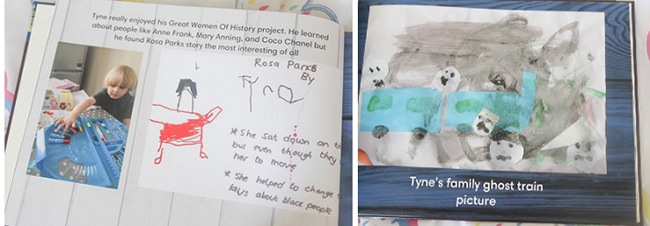 Tyne really enjoyed his Great Women Of History project. He learned
about people like Anne Frank, Mary Anning, and Coco Chanel but
he found Rosa Parks story the most interesting of all
Rosa Parks
By
Tyne
* She sat down on
but even though they
her to move
* She helped to change
laws about black people
Tyne's family ghost train
picture